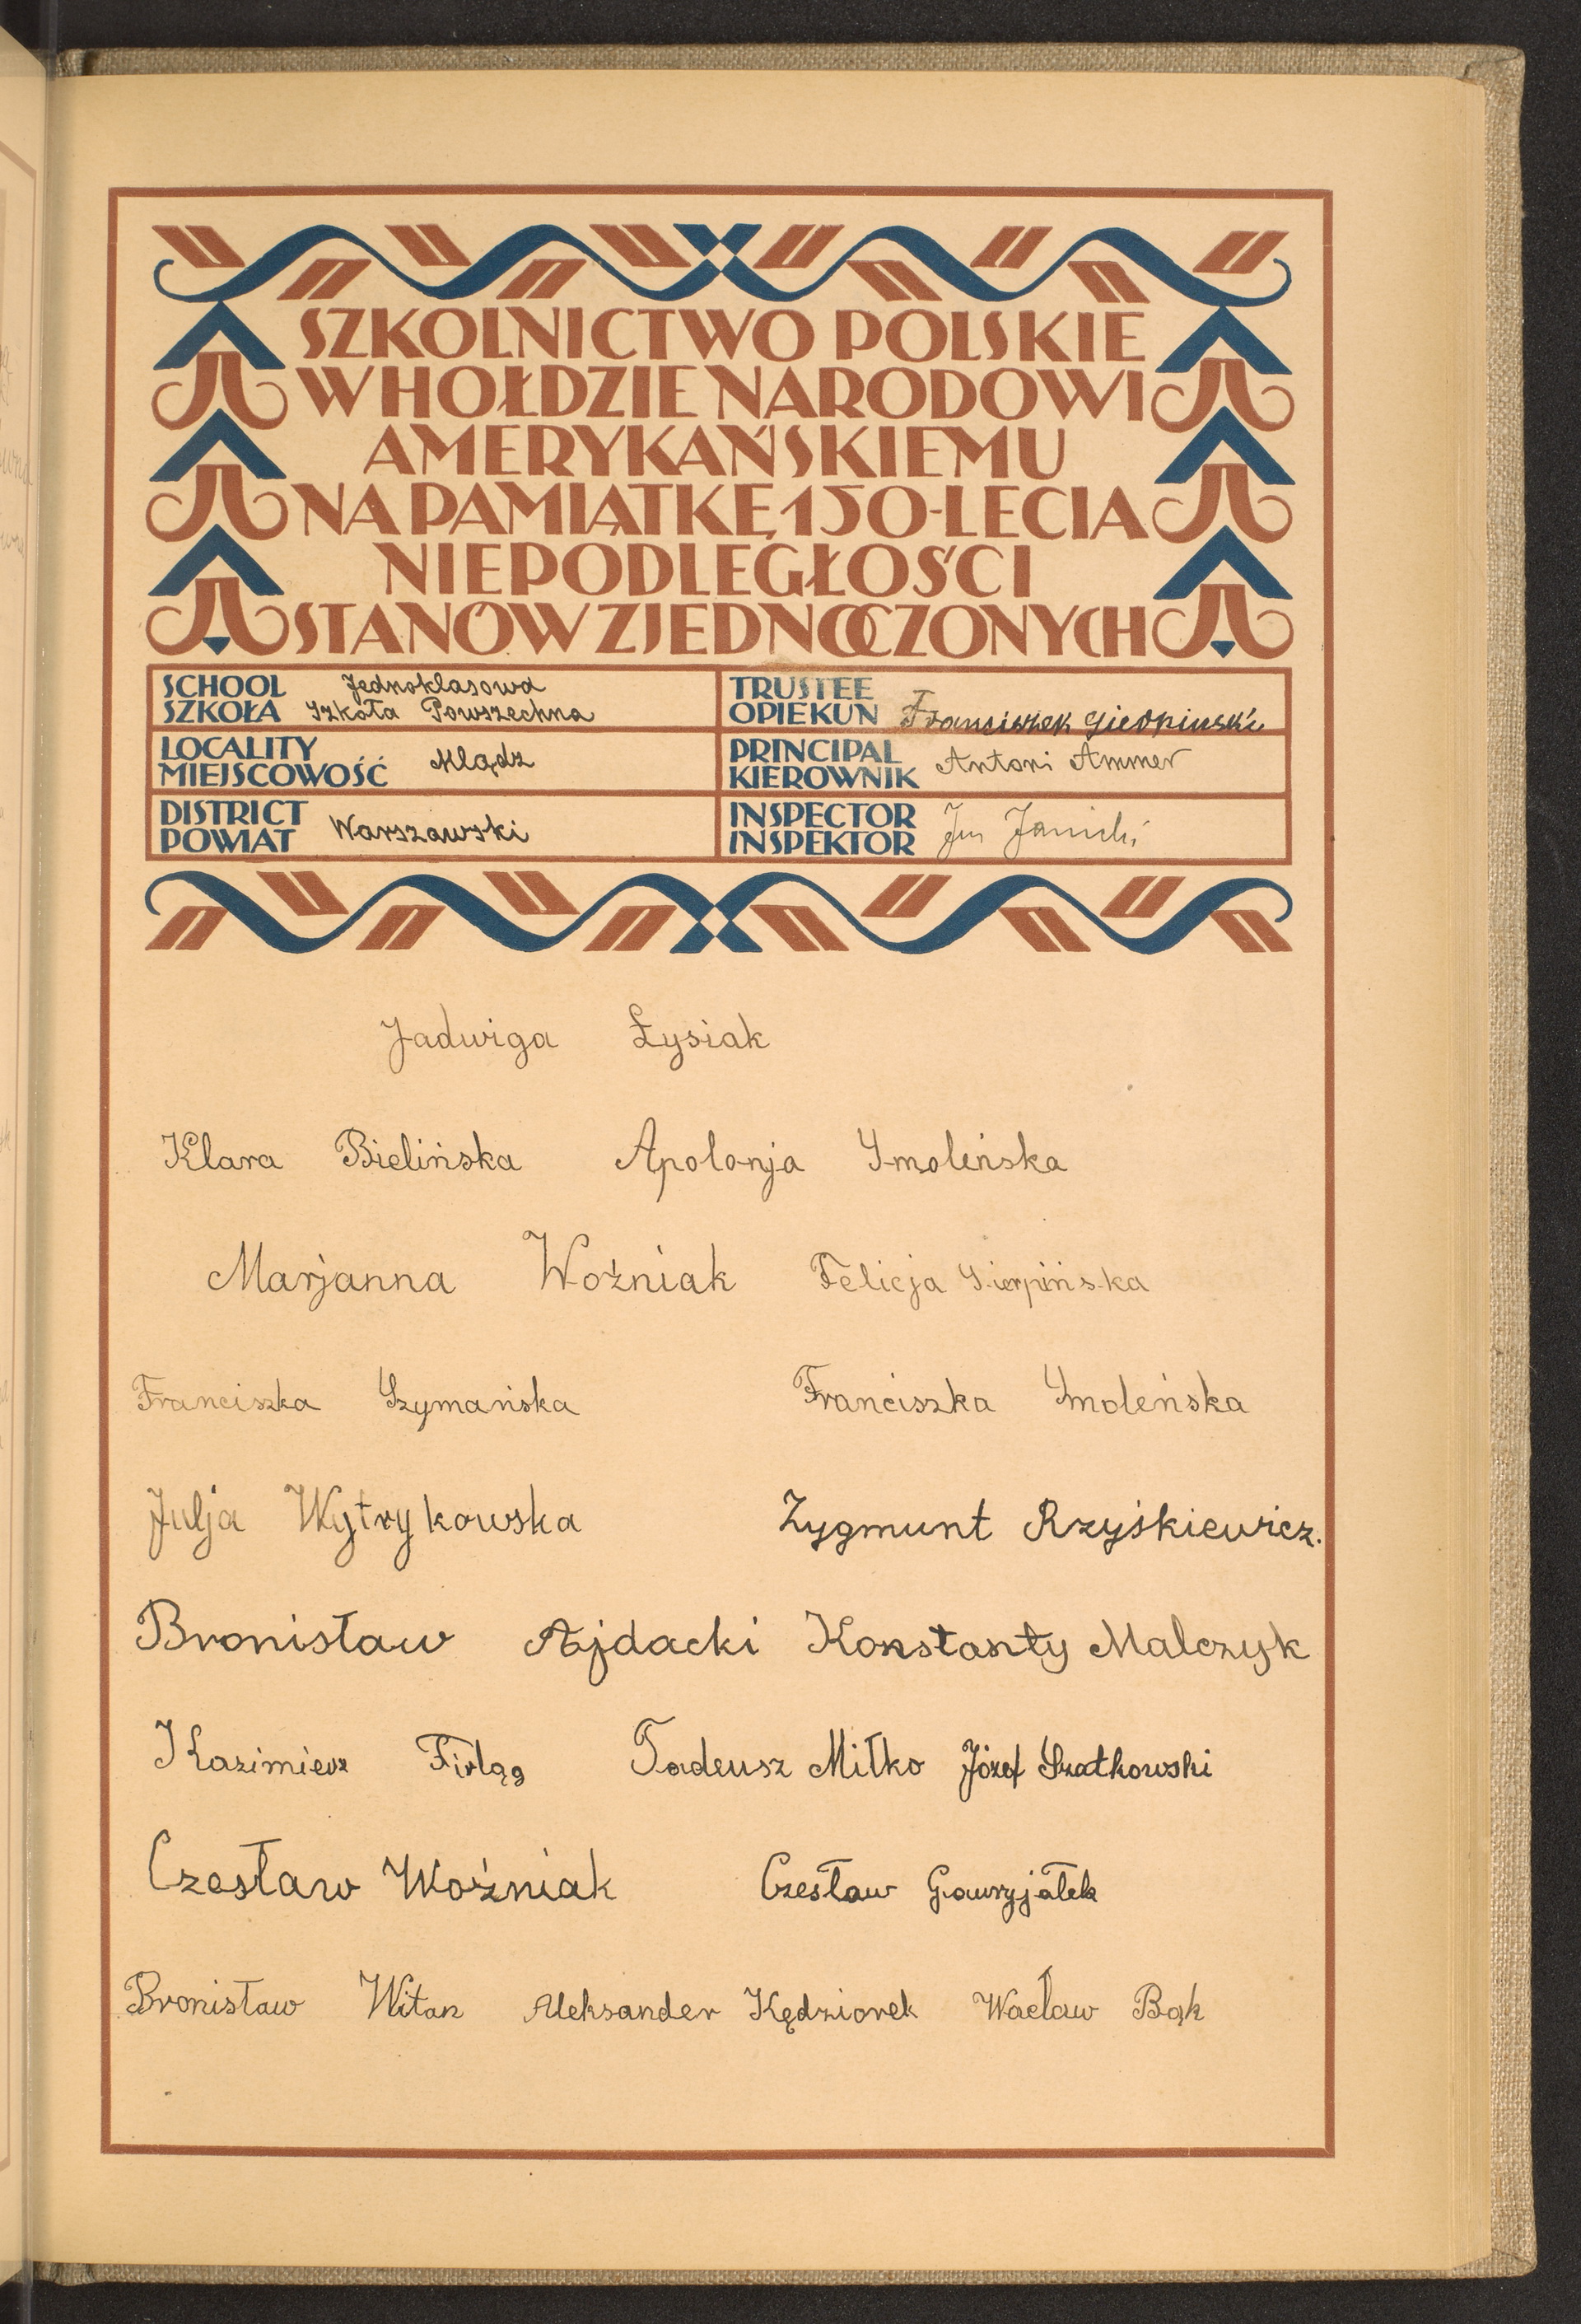 SZKOLNICTWO POLSKIE
W HOŁDZIE NARODOWI
AMERYKAŃSKIEMU
NA PAMIĄTKĘ 150-LECIA
NIEPODLEGŁOŚCI
STANÓW ZJEDNOCZONYCH
SCHOOL
SZKOŁA
Jednoklasowa
Szkoła Powszechna
TRUSTEE
OPIEKUN
Franciszek Sierpiński
LOCALITY
MIEJSCOWOŚĆ
Mlądz
PRINCIPAL
KIEROWNIK
Antoni Ammer
DISTRICT
POWIAT
Warszawski
INSPECTOR
INSPEKTOR
Jan Janicki
Jadwiga Łysiak
Klara Bielińska Apolonja Smoleńska
Marjanna Woźniak Felicja Sierpińska
Franciszka Szymańska Franciszka Smoleńska
Julja Wytrykowska Zygmunt Rzyśkiewicz.
Bronisław Ajdacki Konstanty Malczyk
Kazimierz Firląg Tadeusz Miłko Józef Szatkowski
Czesław Woźniak Czesław Gawryjałek
Bronisław Witan Aleksander Kędziorek Wacław Bąk